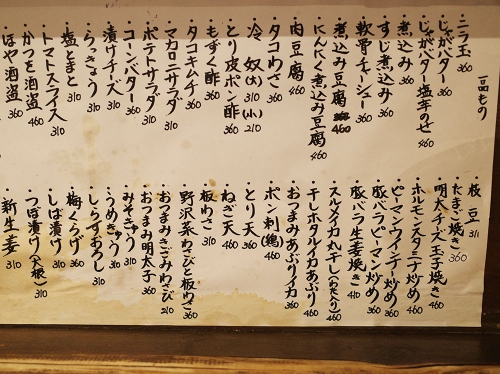 一品もの
・ニラ玉 360
・じゃがバター 360
・じゃがバター塩辛のせ 460
・煮込み 360
・すじ煮込み 360
・軟骨チャーシュー 360
・煮込み豆腐 460
・にんにく煮込み豆腐 460
・肉豆腐 460
・タコわさ 360
・冷奴(大)310(小)210
・とり皮ポン酢 360
・もずく酢 360
・タコキムチ 360
・マカロニサラダ 310
・ポテトサラダ 360
・コーンバター 360
・漬けチーズ 310
・らっきょう 310
・塩とまと 310
・トマトスライス 310
・かつを酒盗 460
・ほや酒盗 360
・枝豆 311
・たまご焼き 360
・明太チーズ玉子焼き 460
・ホルモンスタミナ炒め 460
・ピーマンウインナー炒め 360
・豚バラピーマン炒め 360
・豚バラ生姜焼き 410
・スルメイカ丸干し(わた入り) 460
・干しホタルイカあぶり 460
・おつまみあぶりイカ 360
・ポン刺(鶏) 460
・とり天 360
・ねぎ天 460
・板わさ 310
・野沢菜わさびと板わさ 360
・おつまみきざみわさび 210
・おつまみ明太子 360
・みそきゅう 310
・うめきゅう 310
・しらすおろし 310
・梅くらげ 360
・しば漬け 310
・つぼ漬け(大根) 310
・新生姜 310